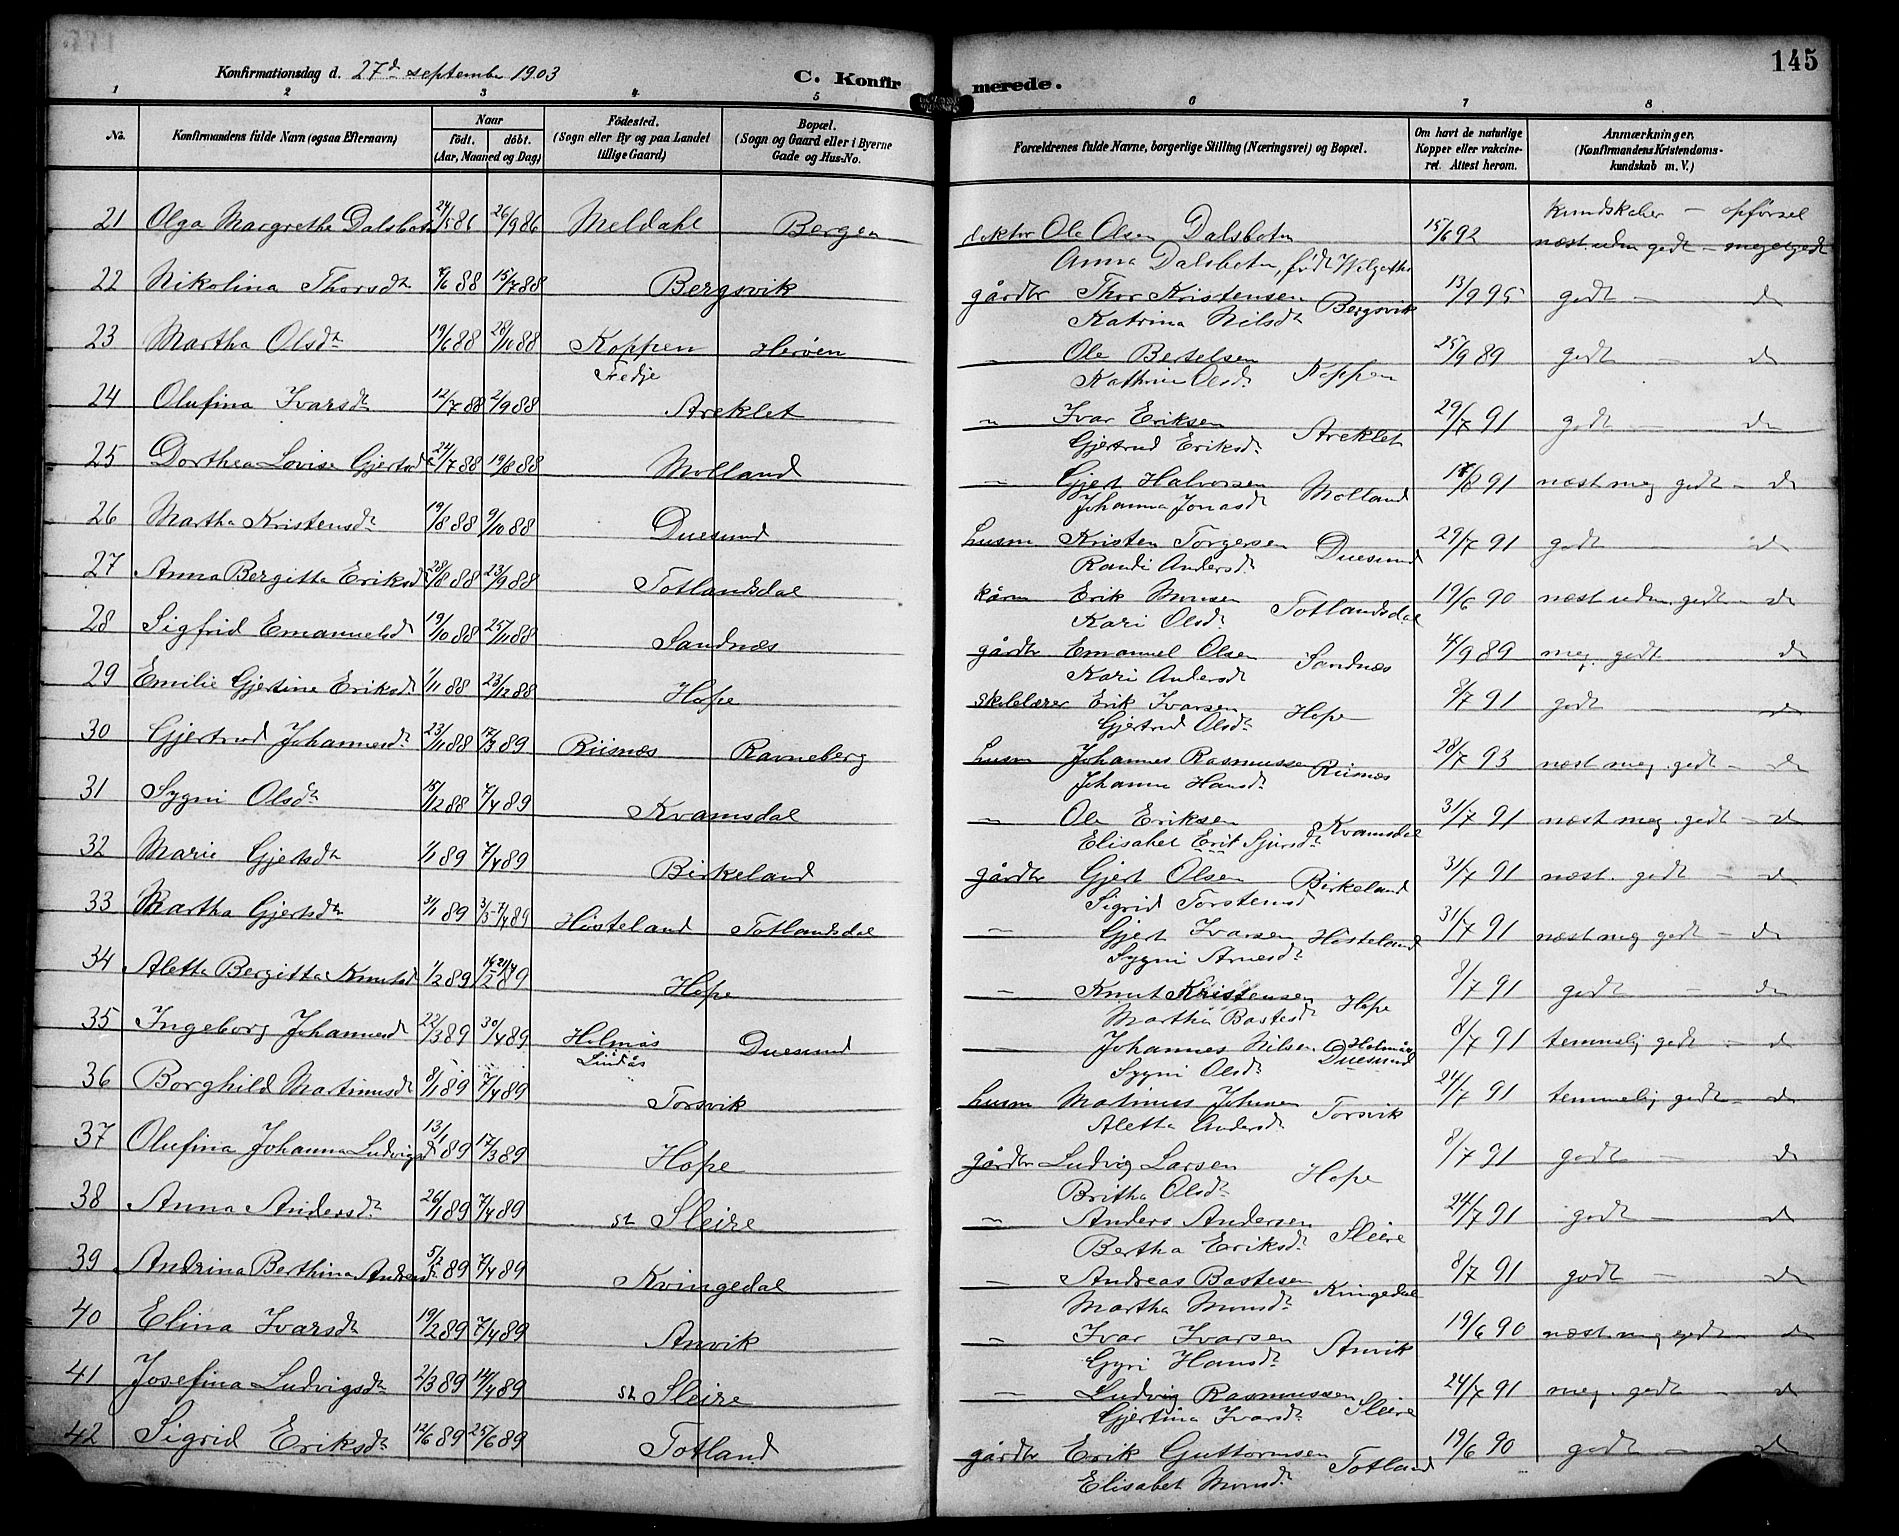 145
Konfirmationsdag d. 27de september 1903
C. Konfirmerede.
1 2 3 4 5 6 7 8
No.
Konfirmandens fulde Navn (ogsaa Efternavn)
Naar
født. døbt.
(Aar, Maaned og Dag)
Fødested.
(Sogn eller By og paa Landet
tillige Gaard)
Bopæl.
(Sogn og Gaard eller i Byerne
Gade og Hus-No.
Forældrenes fulde Navne, borgerlige Stilling (Næringsvei) og Bopæl.
Om havt de naturlige
Kopper eller vakcine-
ret. Attest herom.
Anmærkninger.
(Konfirmandens Kristendoms-
kundskab m. V.)
kundskaber — opførsel
21 Olga Margrethe Dalsbotn 24/5 86 26/9 86 Meldahl Bergen doktor Ole Olsen Dalsboten 15/6 92 næst uden godt — meget godt
Anna Dalsboten, født
22 Nikolina Thorsdt 7/6 88 15/7 88 Bergsvik gårdbr Thor Kristensen Bergsvik 13/9 95 godt — do
Katrina Nilsdt
23 Martha Olsdt 19/6 88 28/10 88 Koppen Herøen " Ole Bertelsen Koppen 25/9 89 godt — do
Fedje Kathrine Olsdt
24 Olufina Ivarsdt 12/7 88 2/9 88 Areklet " Ivar Eriksen Areklet 29/7 91 godt — do
Gjertrud Eriksdt
25 Dorthea Lovise Gjertsdt 24/7 88 19/8 88 Molland — Gjert Halvorsen Molland 17/8 91 næst meg godt — do
Johanna Jonasdt
26 Martha Kristensdt 19/8 88 9/10 88 Duesund husm Kristen Torgersen Duesund 29/7 91 godt — do
Randi Andersdt
27 Anna Bergitta Eriksdt 28/8 88 23/9 88 Totlandsdal kårm Erik Monsen Totlandsdal 19/6 90 næst uden godt — do
Kari Olsdt
28 Sigfrid Emanuelsdt 19/10 88 25/11 88 Sandnæs gårdbr Emanuel Olsen Sandnæs 4/9 89 meg. godt do
Kari Andersdt
29 Emilie Gjertine Eriksdt 1/11 88 23/12 88 Hope skolelærer Erik Ivarsen Hope 8/7 91 godt — do
Gjertrud Olsdt
30 Gjertrud Johannesdt 23/11 88 17/3 89 Riisnæs Ravneberg husm Johannes Rasmussen Riisnæs 28/7 93 næst meg. godt — do
Johanna Hansdt
31 Sygni Olsdt 15/12 88 7/4 89 Kvamsdal " Ole Eriksen Kvamsdal 31/7 91 næst meg. godt — do
Elisabet Erik Sjursdt
32 Marie Gjertsdt 1/1 89 7/4 89 Birkeland gårdbr Gjert Olsen Birkeland 31/7 91 næst. godt — do
Sigrid Torstensd
33 Martha Gjertsdt 3/1 89 31/3-7/4 89 Høsteland Totlandsdal — Gjert Ivarsen Høsteland 31/7 91 næst meg godt — do
Sygni Arnesdt
34 Aletta Bergitta Knutsd 1/2 89 Hope — Knut Kristensen Hope 8/7 91 godt — do
Martha Bastesdt
35 Ingeborg Johannesdt 22/3 89 30/4 89 Helmås Duesund — Johannes Nilsen Helmås 8/7 91 temmelig godt — do
Lindås Sygni Olsdt Duesund
36 Borghild Martinusdt 8/1 89 7/4 89 Torsvik husm Matinus Johnsen Torsvik 24/7 91 temmelig godt — do
Aletta Andersdt
37 Olufina Johanna Ludvigsdt 13/1 89 17/3 89 Hope gårdbr Ludvig Larsen Hope 8/7 91 godt — do
Britha Olsdt
38 Anna Andersdt 26/1 89 7/4 89 st Sleire " Anders Andersen Sleire 24/7 91 godt — do
Bertha Eriksdt
39 Andrina Berthina Andreasdt 5/2 89 7/4 89 Kvingedal — Andreas Bastesen Kvingedal 8/7 91 godt — do
Martha Monsdt
40 Elina Ivarsdt 19/2 89 7/4 89 Anvik " Ivar Ivarsen Anvik 19/6 90 næst. meg godt — do
Gyri Hansdt
41 Josefina Ludvigsdt 2/3 89 14/4 89 st Sleire — Ludvig Rasmussen Sleire 24/7 91 meg. godt — do
Gjertina Ivarsdt
42 Sigrid Eriksdt 12/6 89 25/6 89 Totland gårdbr Erik Guttormsen Totland 19/6 90 godt — do
Elisabet Monsdt